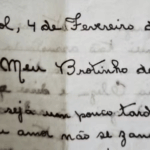 ol, 4 de Fevereiro d
Meu Brotinho do
seja um pouco tard
u amor não se zan